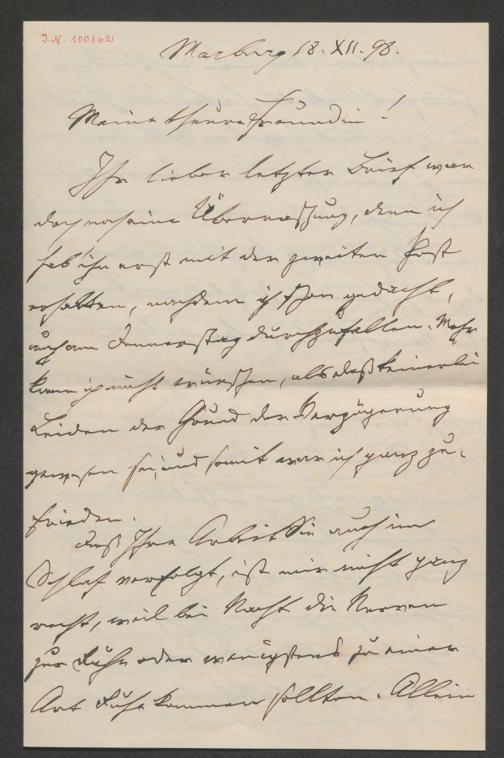 J.N. 100162
Marburg 18. XII. 98.
Meine theure Freundin!
Ihr lieber letzter Brief war
doch noch eine Überraschung, denn ich
hab ihn erst mit der zweiten Post
erhalten, nachdem ich schon gedacht,
auch am Donnerstag durchzufallen. Mehr
kann ich nicht wünschen, als daß keinerlei
Leiden der Grund der Verzögerung
gewesen sei, und somit war ich ganz zu-
frieden.
Daß Ihre Arbeit Sie auch im
Schlaf verfolgt, ist mir nicht ganz
recht, weil bei Nacht die Nerven
zur Ruhe oder wenigstens zu einer
Art Ruhe kommen sollten. Allein